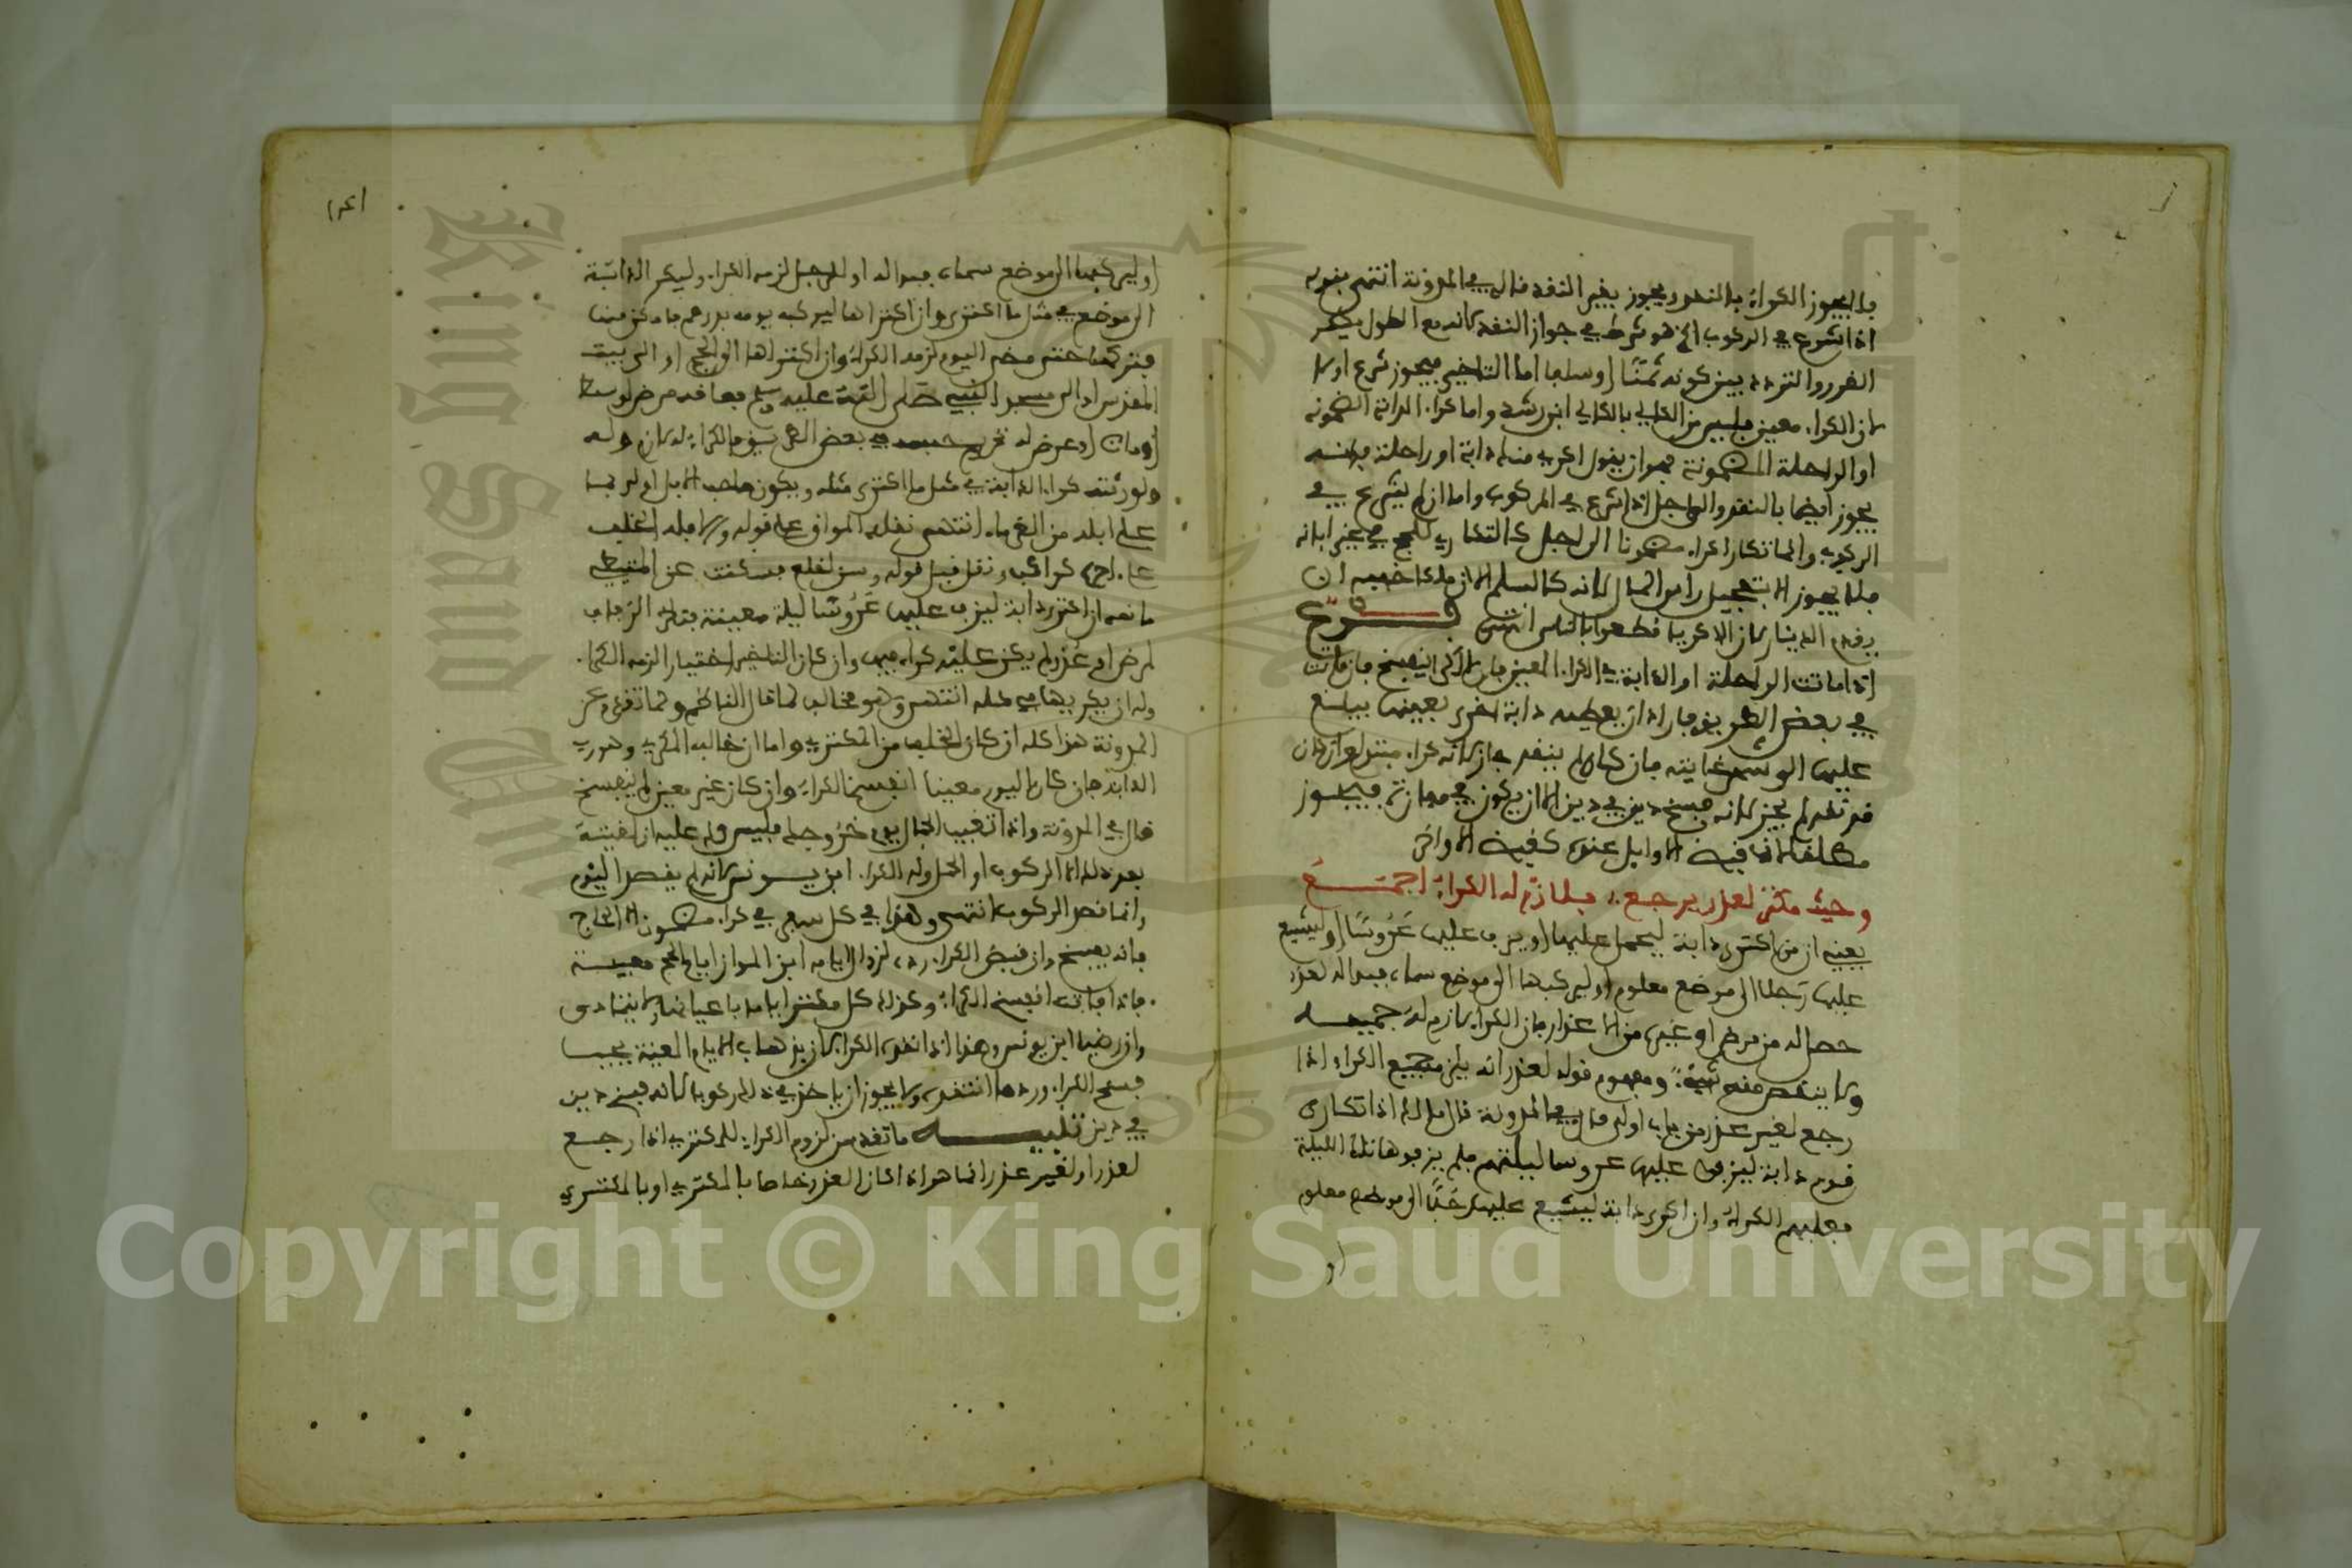 فلا يجوز الكراء بالنقد ويجوز بغير النقد قاله في المدونة انتهى فقوله
اذا شرع في الركوب الخ هو شرط في جواز النقد لانه مع الطول يكثر
الغرر والتردد بين كونه ثمنا او سلفا اما التاخير فيجوز شرع اولا
لان الكراء معين فليس من الكالي بالكالي ابن رشد واما كراء الدابة المضمونة
او الراحلة المضمونة فهو ان يقول اكري منك دابة او راحلة
يجوز ايضا بالنقد والى اجل اذا شرع في الركوب واما ان لم يشرع في
الركوب وانما تكارا كراء مضمونا الى اجل كالتكاري للحج في غير ابانه
فلا يجوز الا بتعجيل راس المال لانه كالسلم الا ان ملكا خفف ان
يقدم الدينار لان الاكرياء قطعوا بالناس انتهى فرع
اذا ماتت الراحلة او الدابة في الكراء المعين فان الكرا ينفسخ فان ماتت
في بعض الطريق فاراد ان يعطيه دابة اخرى بعينها يبلغ
عليها الى غايته فان كان لم ينقد جاز لانه كراء مبتدا وان كان
قد نقد لم يجز لانه فسخ دين في دين الا ان يكون في مفازة فيجوز
مطلقا
وحيث مكتر لعذر يرجع فلازم له الكراء اجمع
يعني ان من اكترى دابة ليحمل عليها او يزف عليها عروسا او ليشيع
عليها رجلا الى موضع معلوم او ليركبها الى موضع سماه فبدا له لعذر
حصل له من مرض او غيره من الاعذار فان الكراء لازم له جميعه
ولا ينقص منه شيء ومفهوم قوله لعذر انه يلزم جميع الكراء اذا
رجع لغير عذر من باب اولى قال في المدونة قال ملك اذا تكارى
قوم دابة ليزفوا عليها عروسا ليلتهم فلم يزفوها تلك الليلة
فعليهم الكراء وان اكرى دابة ليشيع عليها رجلا الى موضع معلوم
او
او ليركبها الى موضع سماه فبدا له او للرجل لزمه الكراء وليكر الدابة
الى موضع في مثل ما اكترى وان اكتراها ليركبه يومه بدرهم فامكن منها
فتركها حتى مضى اليوم لزمه الكراء وان اكتراها الى الحج او الى بيت
المقدس او الى مسجد النبي صلى الله عليه وسلم فعاقه مرض او سقط
او مات او عرض له غريم حبسه في بعض الطريق فالكراء له لازم وله
ولورثته كراء الدابة في مثل ما اكترى مثله ويكون صاحب الابل اولى بما
على ابله من الغرماء انتهى نقله المواق على قوله
ونقل قبل قوله وسن لقلع فسكنت عن المتيطي
ما نصه ان اكترى دابة ليزف عليها عروسا ليلة معينة فتاخر الزفاف
لمرض او عذر لم يكن عليه كراء فيها وان كان التاخير اختيارا لزمه الكراء
وله ان يكريها في مثله انتهى وهو مخالف لما قال الناظم ولما تقدم عن
المدونة هذا كله ان كان التخلف من المكتري واما ان خالف المكري وهرب
الدابة فان كان اليوم معينا انفسخ الكراء وان كان غير معين لم ينفسخ
قال في المدونة واذا تغيب الجمال يوم خروجك فليس لك عليه ان لقيته
بعد ذلك الا الركوب او الحمل وله الكراء ابن يونس لانه لم يقصد اليوم
وانما قصد الركوب انتهى وهذا في كل سفر في كراء مضمون الا الحاج
فانه يفسخ وان قبض الكراء رده لزوال ايامه ابن المواز ايام الحج معينة
فاذا فاتت انفسخ الكراء وكذلك كل مكتر اياما باعيانها لا يتمادى
وان رضيا ابن يونس وهذا اذا نقده الكراء لان بذهاب الايام المعينة يجب
فسخ الكراء ورد ما انتقد ولا يجوز ان ياخذ في ذلك ركوبا لانه فسخ دين
في دين تنبيه ما تقدم من لزوم الكراء للمكتري اذا رجع
لعذر او لغير عذر انما هو اذا كان العذر خاصا بالمكتري او بالمكتري